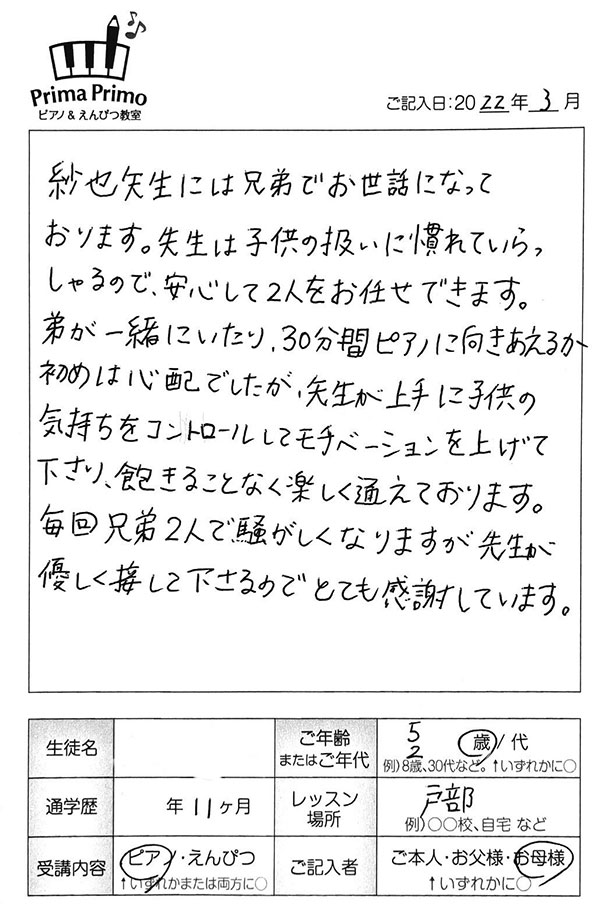 Prima Primo
ピアノ & えんぴつ教室
ご記入日:2022年3月
紗也先生には兄弟でお世話になって
おります。先生は子供の扱いに慣れていらっ
しゃるので、安心して2人をお任せできます。
弟が一緒にいたり、30分間ピアノに向きあえるか
初めは心配でしたが、先生が上手に子供の
気持ちをコントロールしてモチベーションを上げて
下さり、飽きることなく楽しく通えております。
毎回兄弟2人で騒がしくなりますが先生が
優しく接して下さるのでとても感謝しています。
生徒名
ご年齢
またはご年代
5
2
歳/代
例)8歳、30代など。↑いずれかに○
通学歴
年11ヶ月
レッスン
場所
戸部
例)○○校、自宅 など
受講内容
ピアノ・えんぴつ
↑いずれかまたは両方に○
ご記入者
ご本人・お父様・お母様
↑いずれかに○